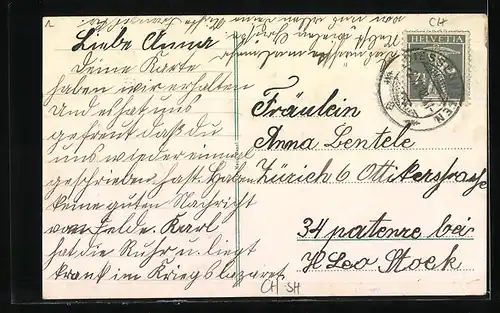 CH
Liebe Anna
Deine Karte
haben wir erhalten
Und es hat uns
gefreut daß du
uns wieder einmal
geschrieben hast. Haben
keine guten Nachricht
vom Felde. Karl
hat die Ruhr u. liegt
krank im Kriegslazaret
HELVETIA
Fräulein
Anna Lentele
Zürich 6 Ottikerstrasse
34 patenre bei
H Leo Stock
CH SH